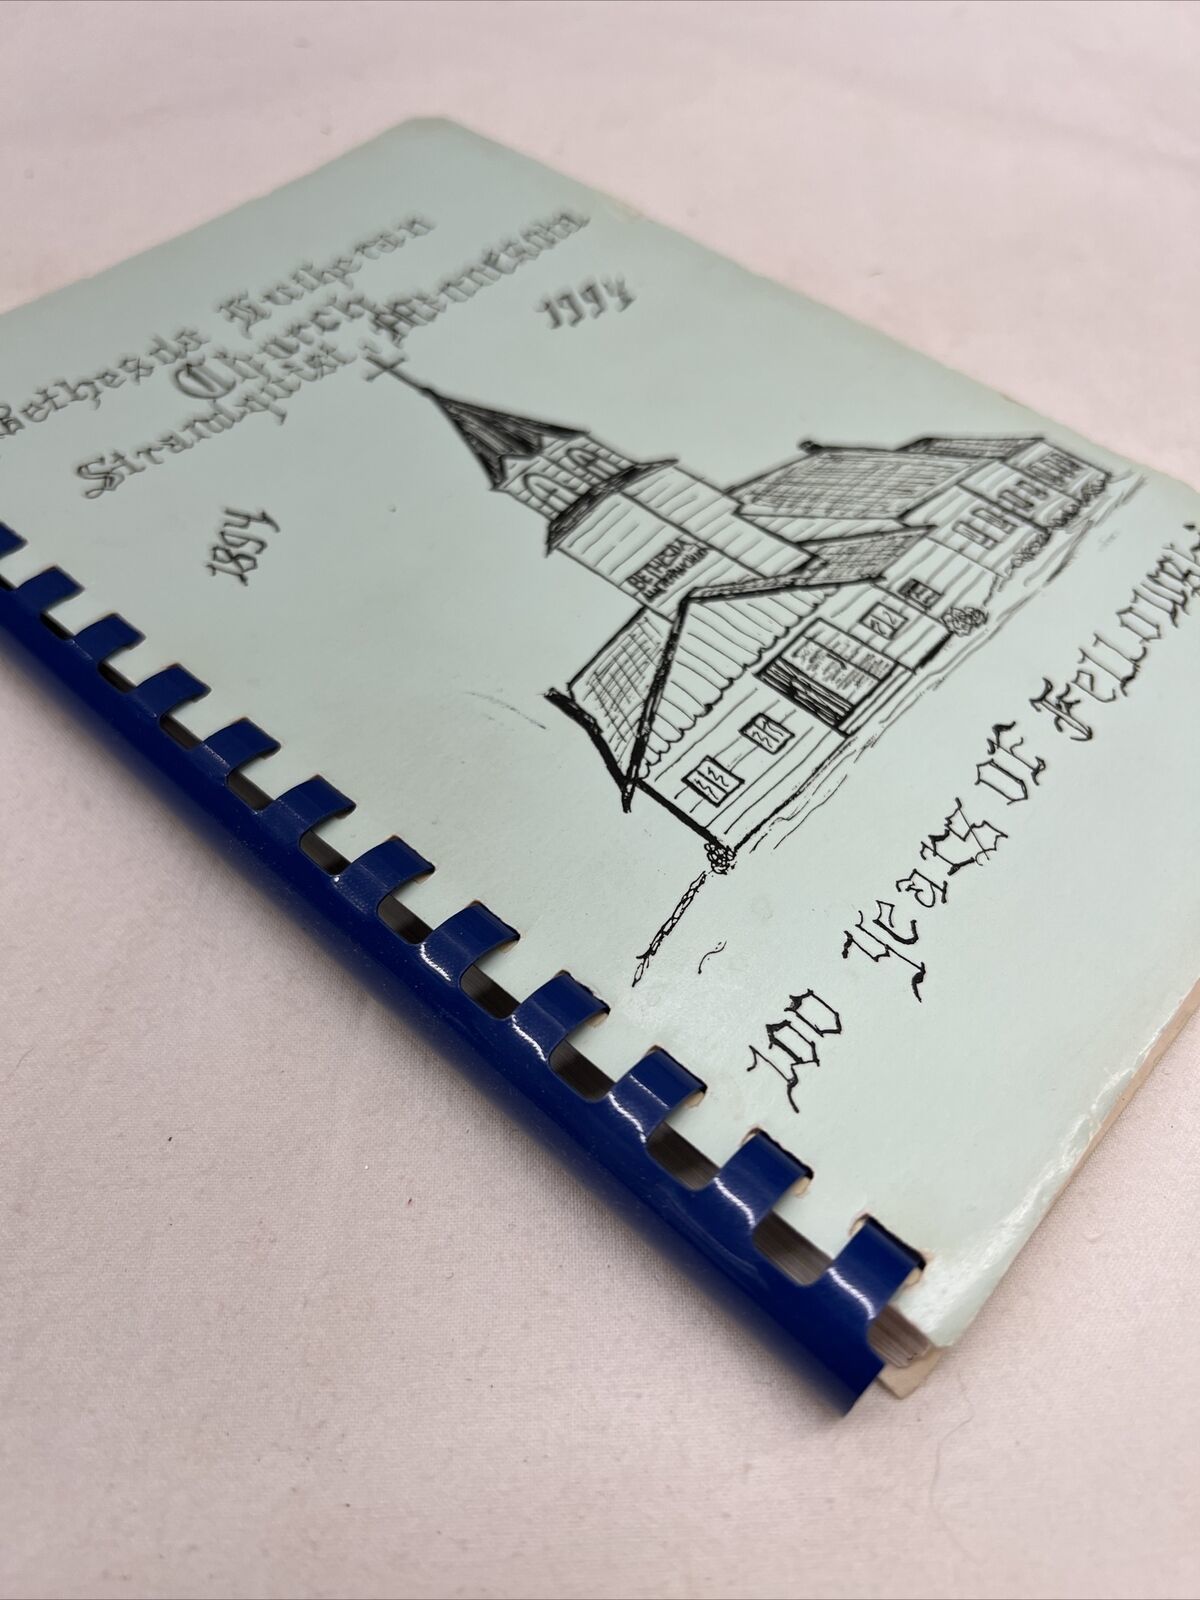 Bethesda Lutheran
Church
Strandquist, Minnesota
1894
1994
BETHESDA
LUTHERAN CHURCH
100 Years OF Fellowship